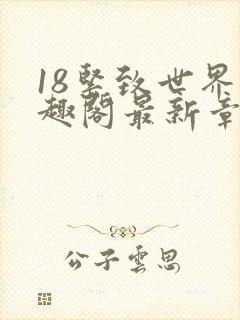 18坚致世界
趣阁最新章
公子雲思